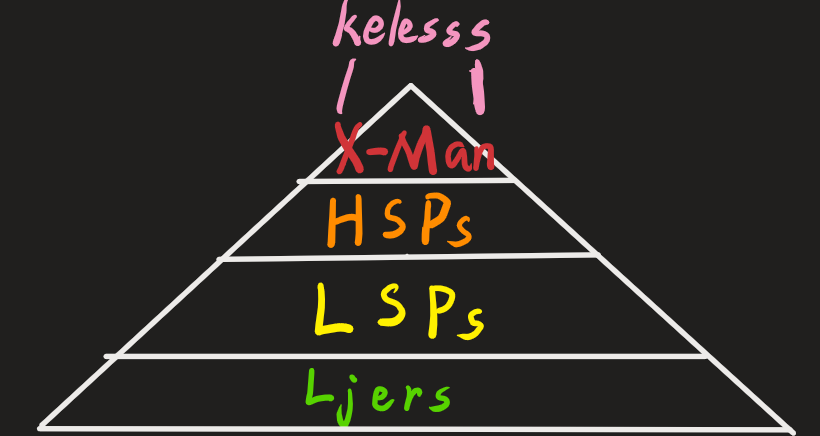 kelesss
X-Man
HSPs
LSPs
Ljers